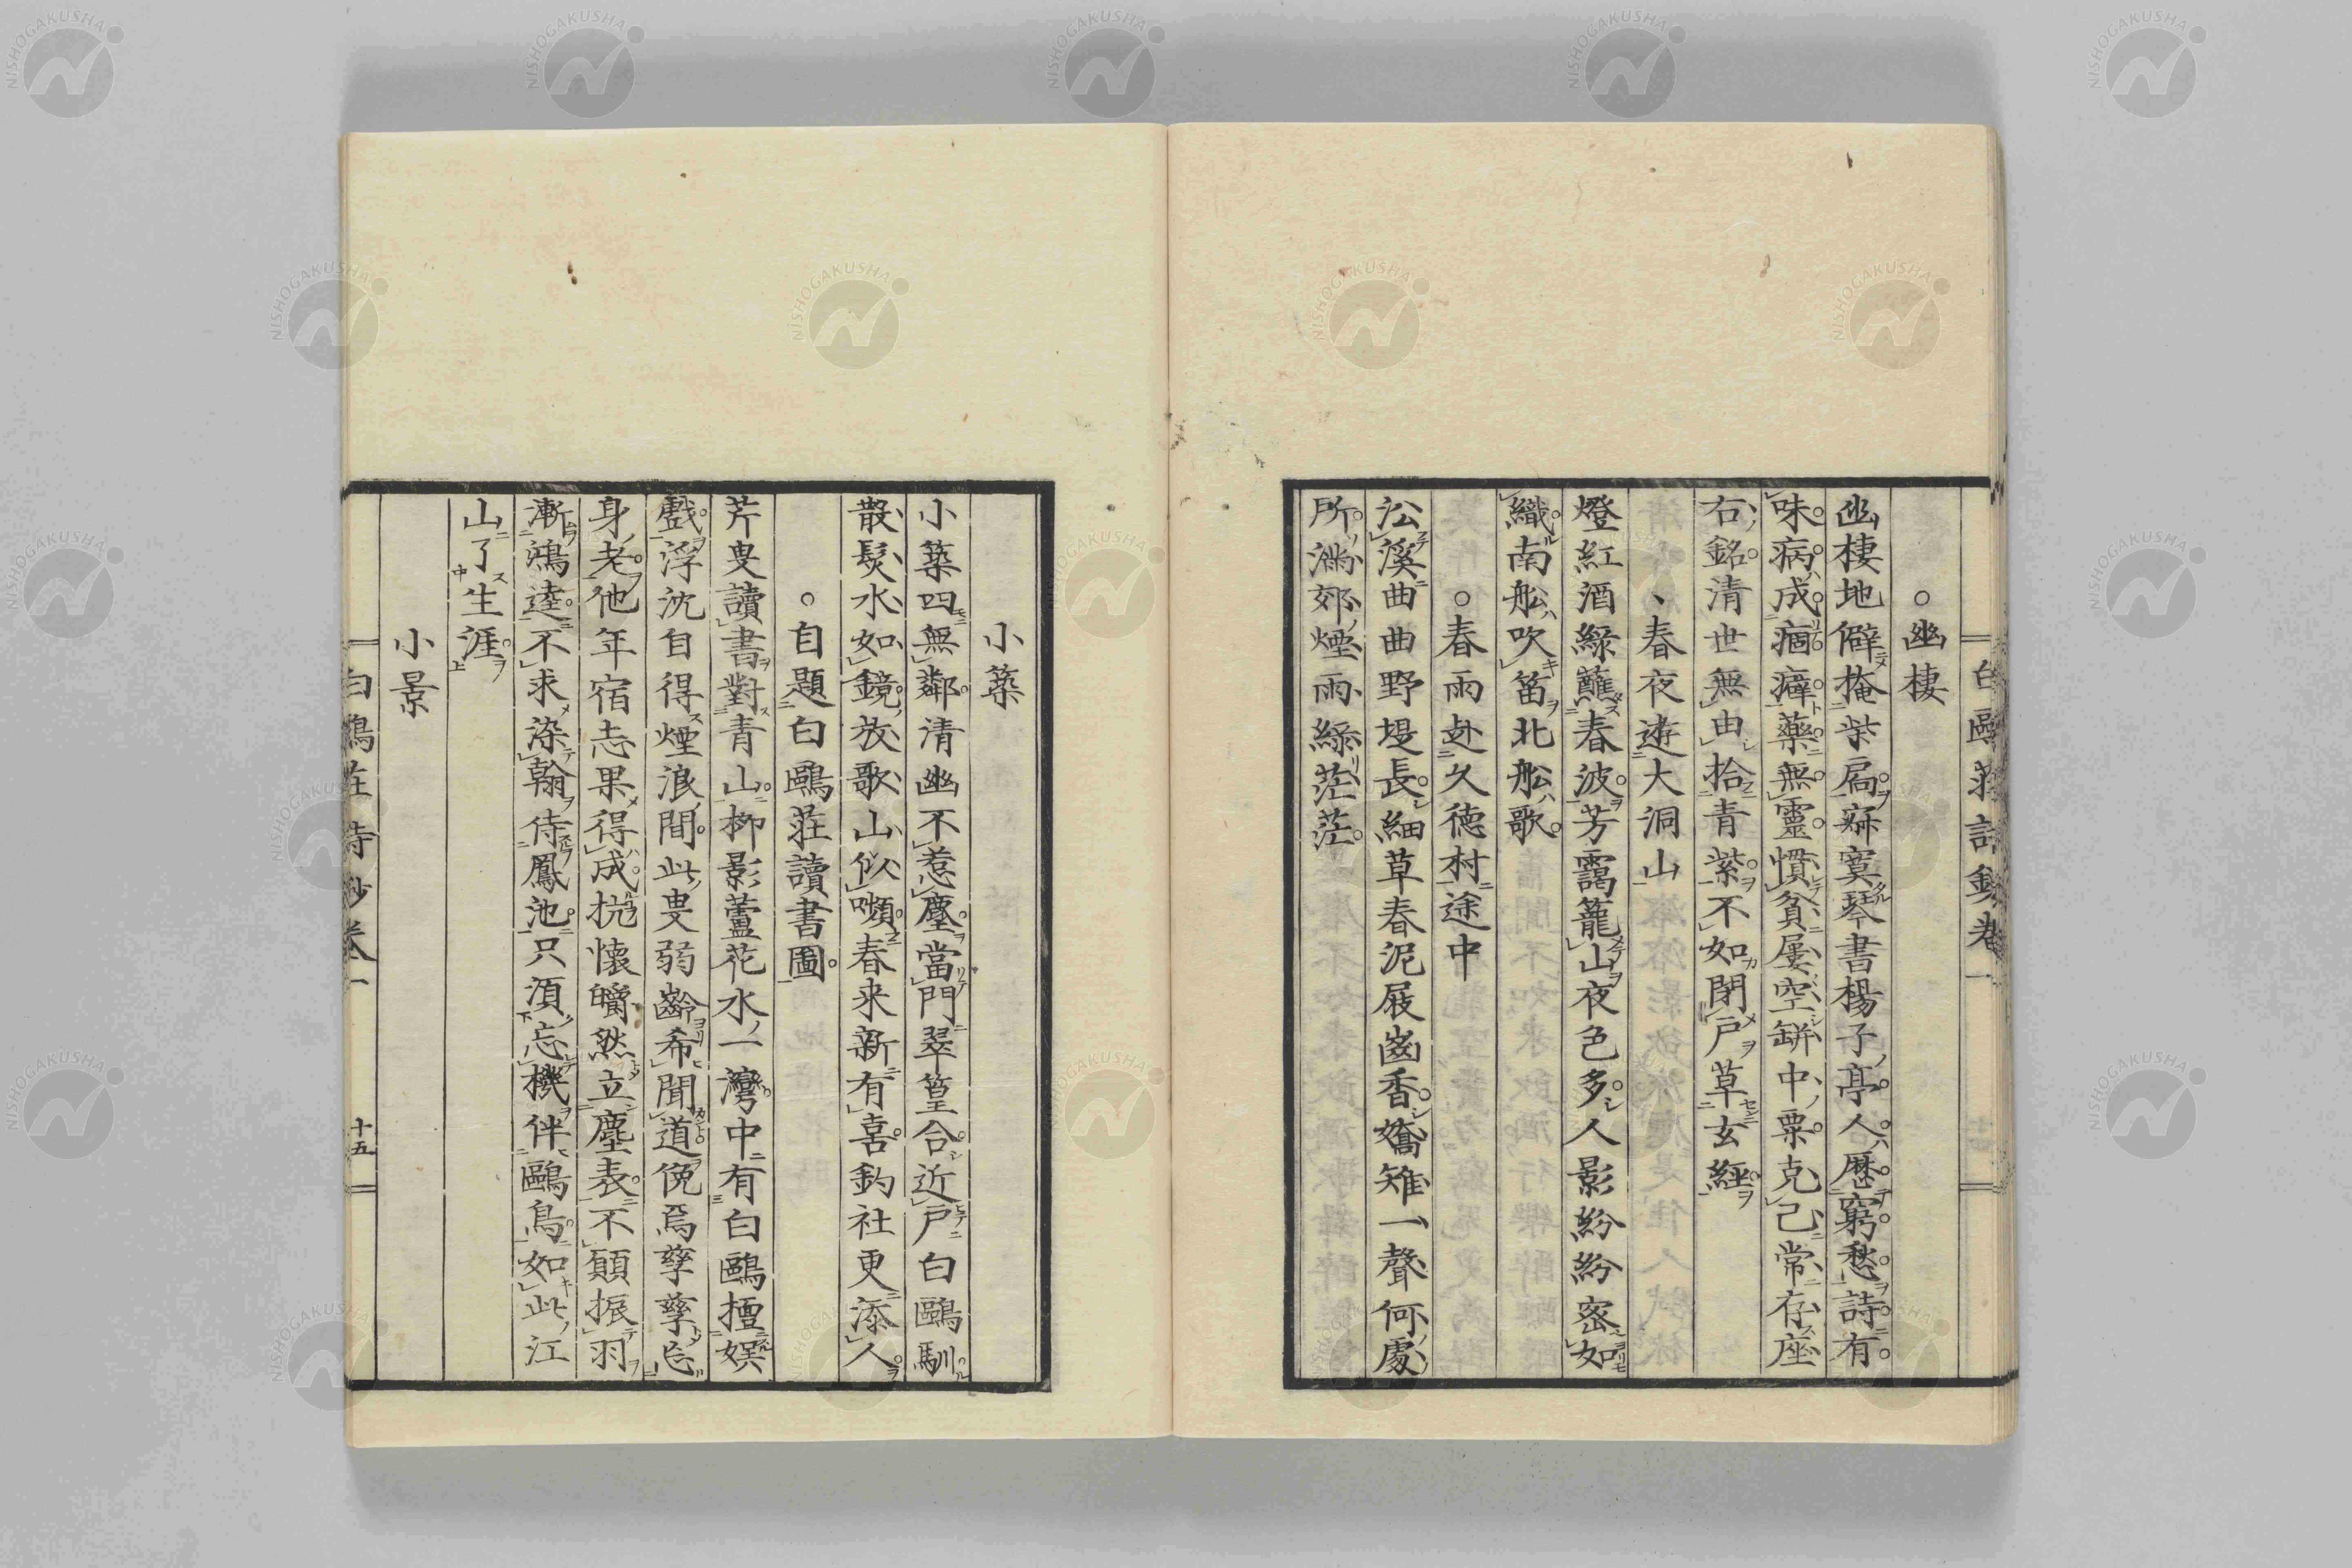 白鷗莊詩鈔卷一
幽棲
幽棲地僻掩柴扃寂寞琴書楊子亭人歷窮愁詩有
味病成痼癖藥無靈慣貧屢空缾中粟克己常存座
右銘清世無由拾青紫不如閉戶草玄經
春夜遊大洞山
燈紅酒綠蘸春波芳靄籠山夜色多人影紛紛密如
織南船吹笛北船歌
春雨赴久德村途中
沿溪曲曲野堤長細草春泥屐齒香嬌雉一聲何處
所滿郊煙雨綠茫茫
小築
小築四無鄰清幽不惹塵當門翠篁合近戶白鷗馴
散髮水如鏡放歌山似嚬春來新有喜釣社更添人
自題白鷗莊讀書圖
芹叟讀書對青山柳影蘆花水一灣中有白鷗擅娛
戲浮沈自得煙浪間此叟弱齡希聞道俛焉孳孳忘
身老他年宿志果得成挽懷皭然立塵表不願振羽
漸鴻逵不求染翰侍鳳池只須忘機伴鷗鳥如此江
山了生涯
小景
白鷗莊詩鈔卷一
十五
NISHOGAKUSHA